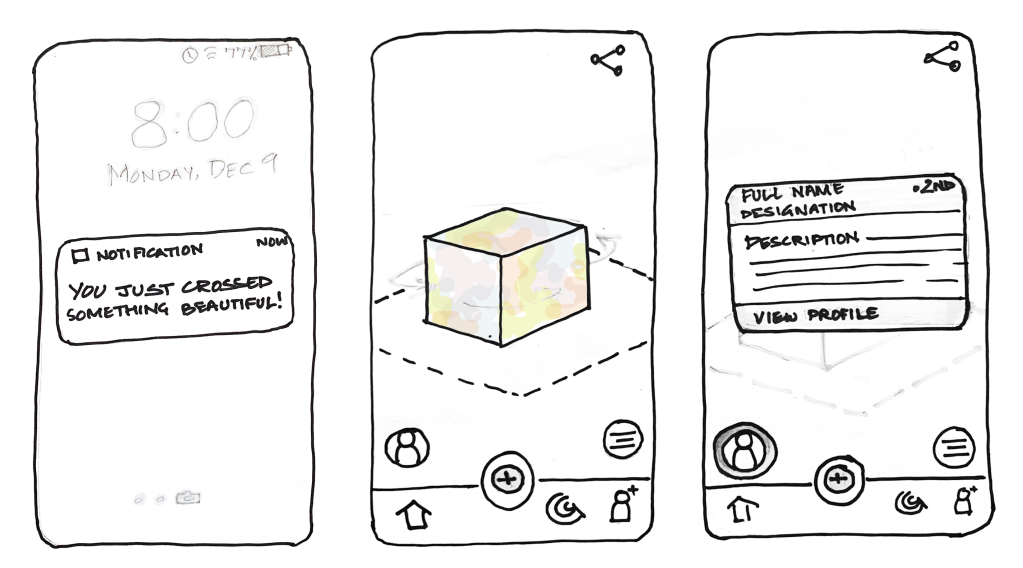 77%
8:00
MONDAY, DEC 9
NOTIFICATION NOW
YOU JUST CROSSED
SOMETHING BEAUTIFUL!
FULL NAME .2ND
DESIGNATION
DESCRIPTION
VIEW PROFILE